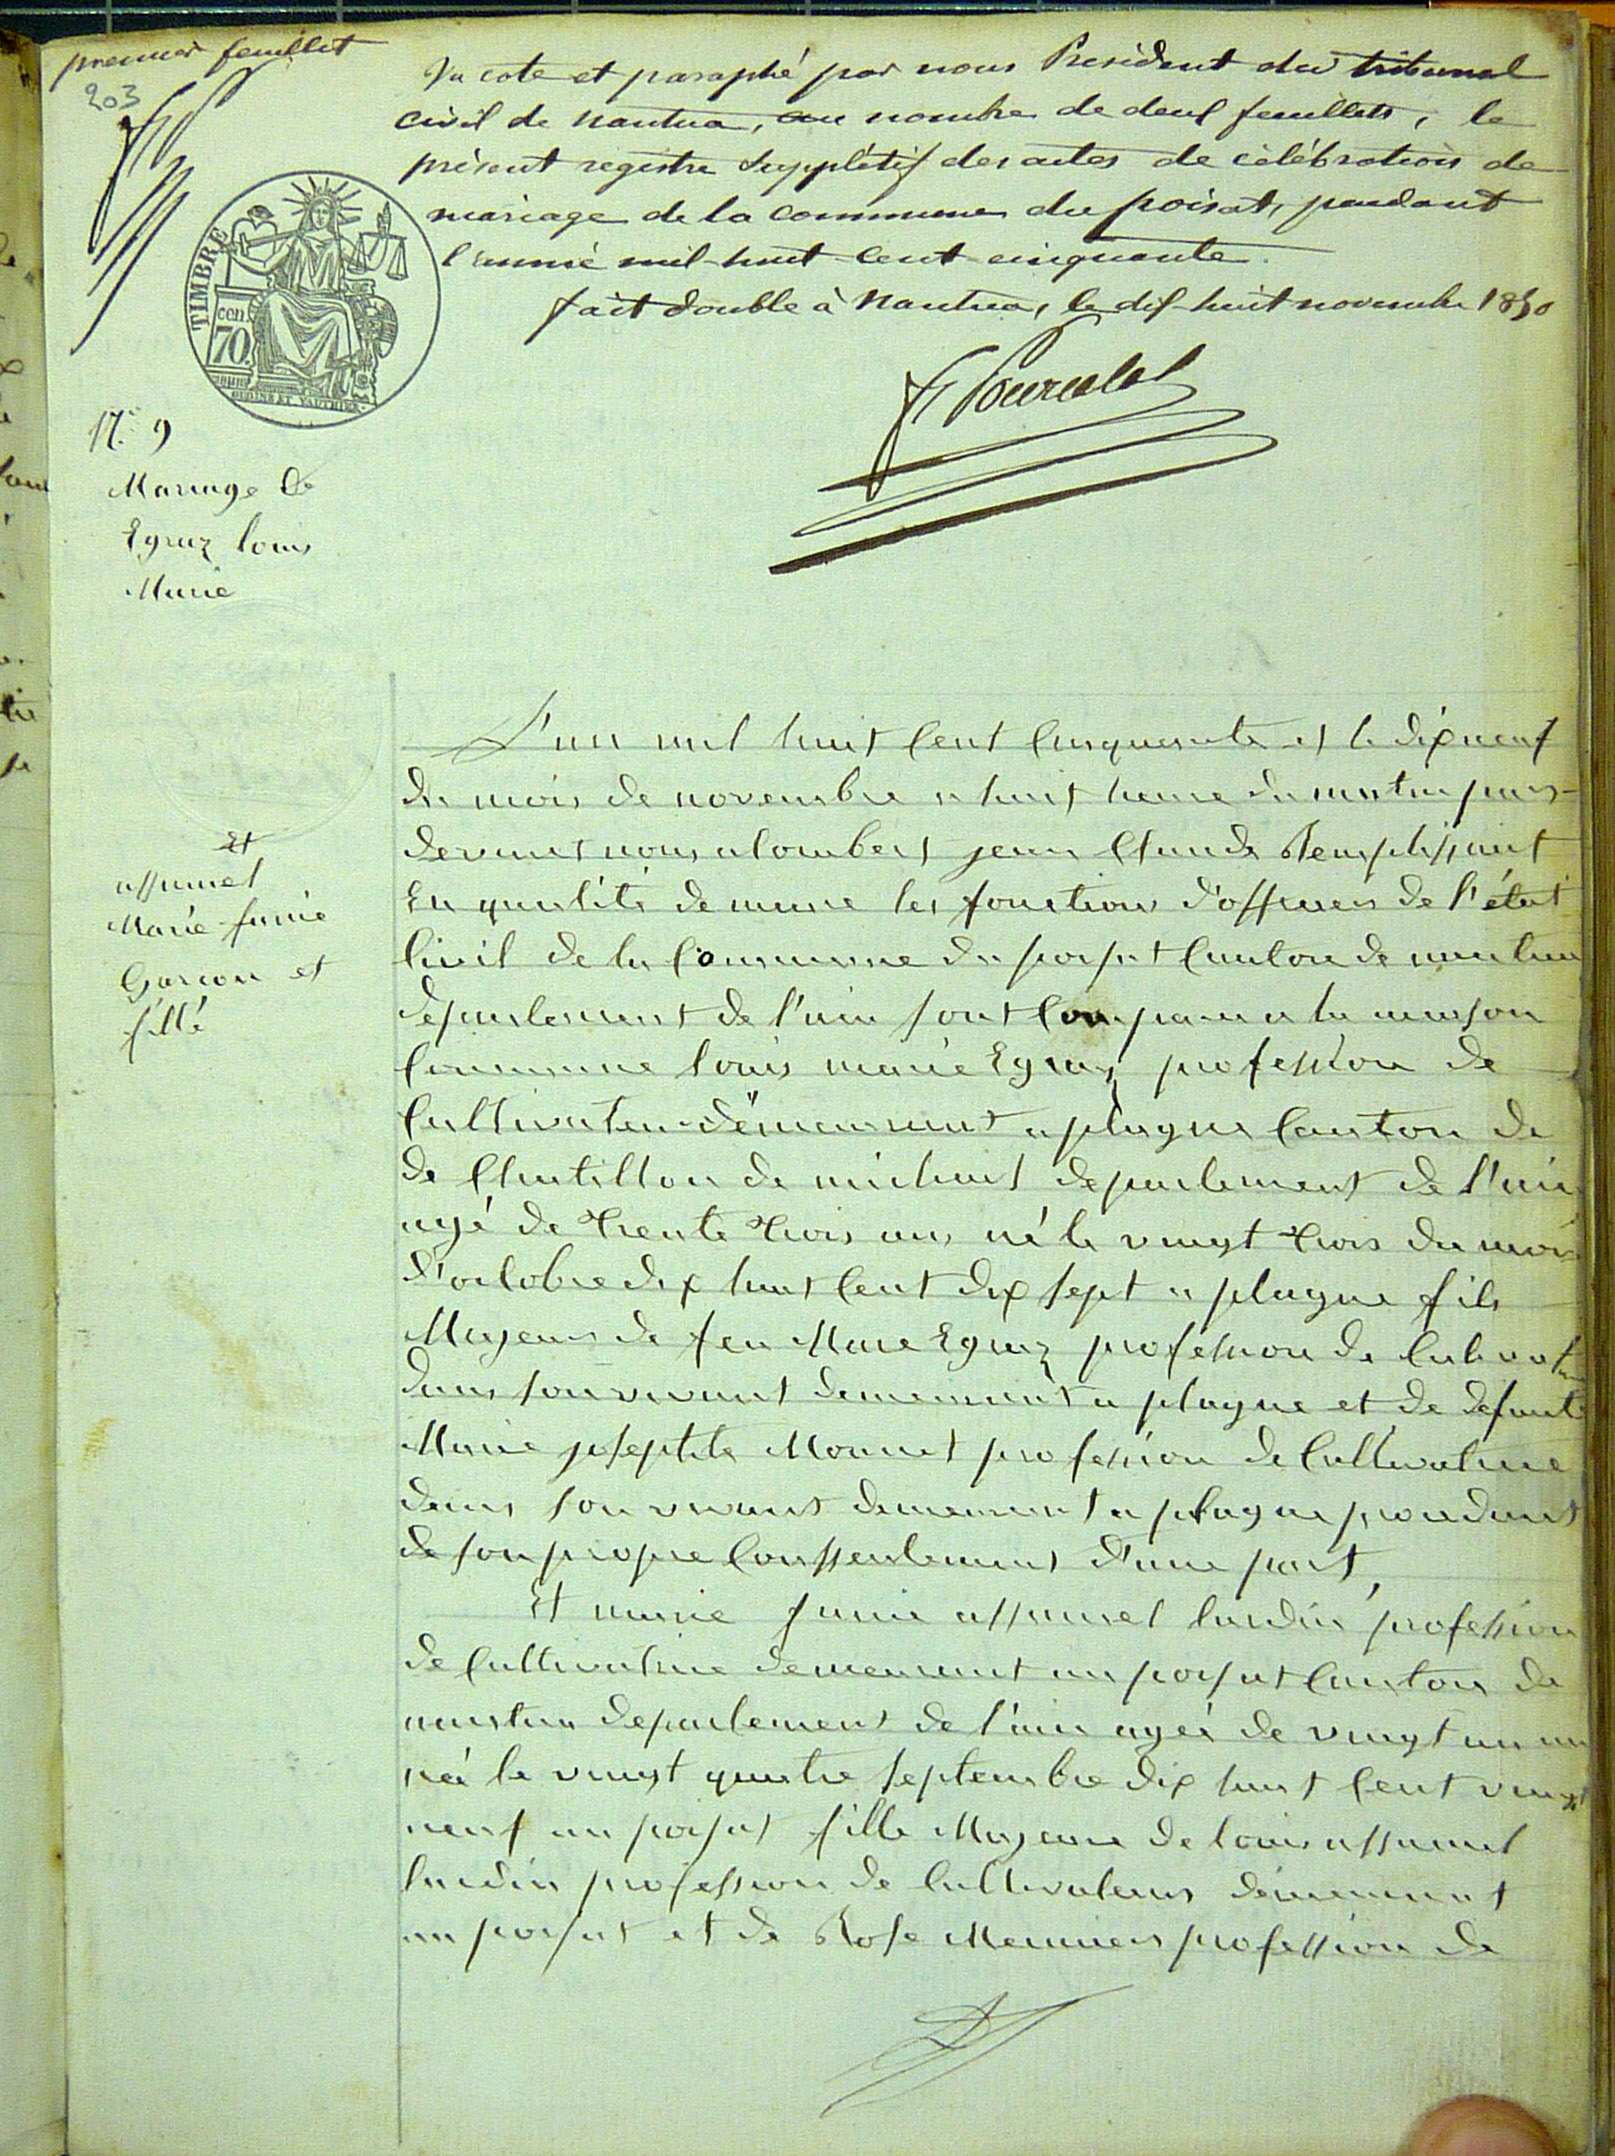 premier feuillet
203
Vu coté et paraphé par nous Président du tribunal
civil de Nantua, au nombre de deux feuillets, le
présent registre Supplétif des actes de célébration de
mariage de la commune du poisat, pendant
l'année mil huit cent cinquante.
fait double à Nantua, le dix-huit novembre 1850
TIMBRE
cen.
70.
OUDINÉ ET VAUTHIER
N.° 9
Mariage de
Egraz louis
Marie
Et
assumel
Marie funie
Garcon et
fillé
L'an mil huit Cent Cinquante et le dix neuf
du mois de novembre a huit heure du mattin pars
devant nous alombert jean Claude Remplissant
En qualité de maire les fonctions d'officiers de l'état
Civil de la Commune du poysat Canton de nantua
départemens t de l'ain sont Comparu a la maison
Commune louis marie Egraz profession de
Cultivateur démeurant a plagne Canton de
de Chatillon de michail departement de l'ain
agé de trente trois ans né le vingt trois du mois
d'octobre dix huit Cent dix sept a plagne fils
Majeur de feu Marie Egraz profession de Cultivateur
dans son vivant demeurant a plagne et de defunte
Marie josephte Monnet profession de Cultivatrice
dans son vivant demeurant a plagne procedant
de son propre Conssentement d'une part,
Et marie funie assumel lurdin profession
de Cultivatrice demeurant au poysat Canton de
nantua departement de l'ain agée de vingt un an
née le vingt quatre septembre dix huit Cent vingt
neuf au poysat fille Majeure de louis assumel
lurdin profession de Cultivateur démeurant
au poysat et de Rose Meunier profession de